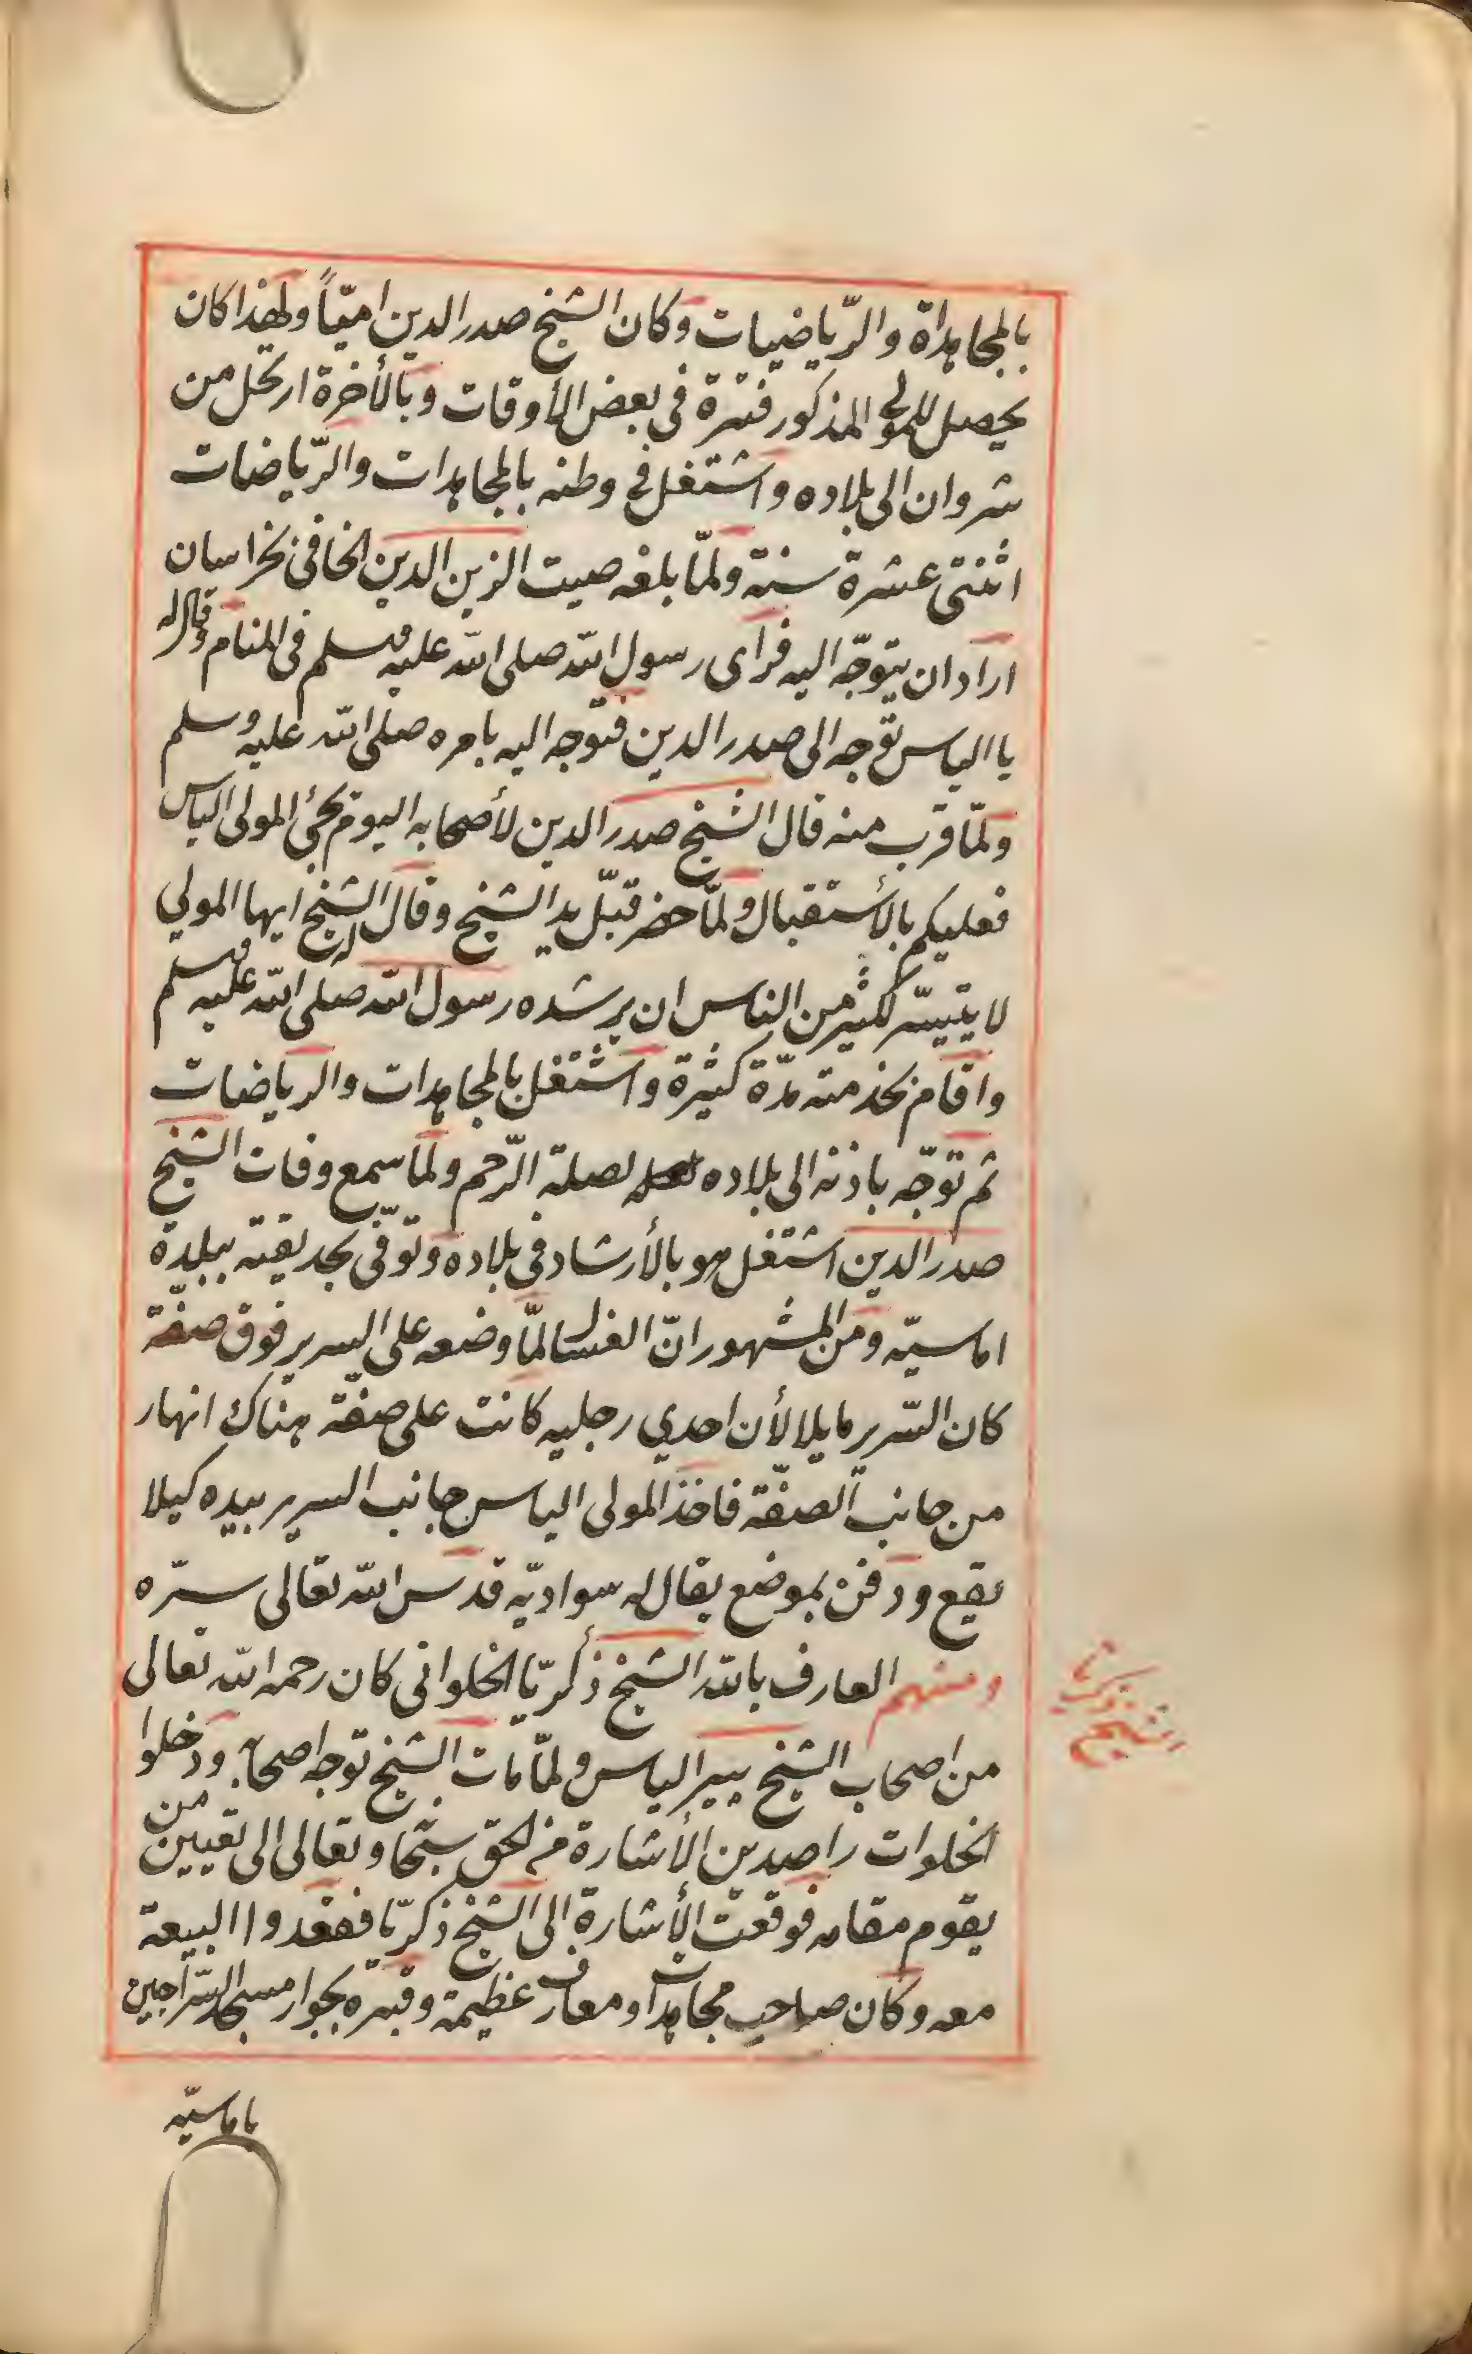 بالمجاهداة والرّياضيات وكان الشيخ صدر الدين اميّاً ولهذا كان
يحصل للمولى المذكور فترة فى بعض الأوقات وبالأخرة ارتحل من
شروان الى بلاده واشتغل فى وطنه بالمجاهدات والرّياضات
اثنتى عشرة سنة ولمّا بلغه صيت الزين الدين الخافى بخراسان
اراد ان يتوجّه اليه فراى رسول الله صلى الله عليه وسلم فى المنام وقال له
يا الياس توجه الى صدر الدين فتوجه اليه بامره صلى الله عليه وسلم
ولمّا قرب منه قال الشيخ صدر الدين لأصحابه اليوم يجئ المولى الياس
فعليكم بالأستقبال ولمّا حضر قبّل يد الشيخ وقال له الشيخ ايها المولي
لا يتيسّر لكثير من الناس ان يرشده رسول الله صلى الله عليه وسلم
واقام بخدمته مدّة كثيرة واشتغل بالمجاهدات والرياضات
ثم توجّه باذنه الى بلاده لصلة الرّحم ولما سمع وفات الشيخ
صدر الدين اشتغل هو بالأرشاد فى بلاده وتوفّى بحديقته ببلدة
اماسيّه ومن المشهور انّ الغسال لمّا وضعه على السرير فوق صفّة
كان السّرير مايلا لأن احدي رجليه كانت على صفّة هناك انهار
من جانب الصفّة فاخذ المولى الياس جانب السرير بيده كيلا
يقع ودفن بموضع يقال له سواديّه قدس الله تعالى سرّه
ومنهم العارف بالله الشيخ ذكريّا الخلواتى كان رحمه الله تعالى
الشيخ ذكريا
من اصحاب الشيخ پير الياس ولمّا مات الشيخ توجه اصحابه ودخلوا
الخلوات راصدين الأشارة من الحق سبحا وتعالى الى تعيين من
يقوم مقامه فوقعت الأشارة الى الشيخ ذكريّا فقعدوا البيعة
معه وكان صاحب مجاهدات ومعارف عظيمة وقبره بجوار مسجد السّراجين
باماسيّه